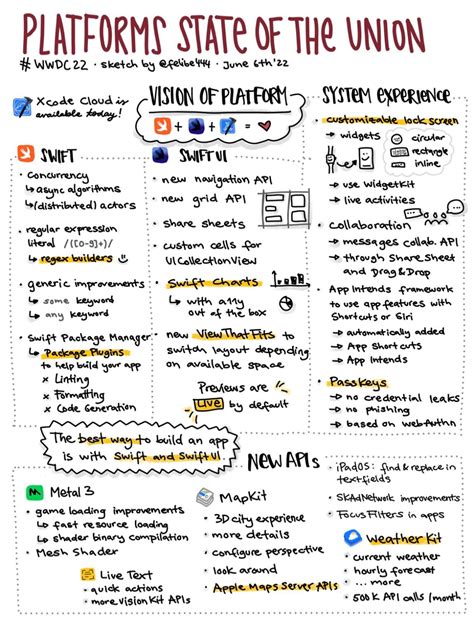 PLATFORMS STATE OF THE UNION
#WWDC22 · sketch by @felibe444 · June 6th '22
Xcode Cloud is
available today!
VISION OF PLATFORM
+ + =
SYSTEM EXPERIENCE
customizeable lock screen
→ widgets
circular
rectangle
inline
→ use WidgetKit
→ live activities
• Collaboration
→ messages collab. API
→ through Share Sheet
and Drag & Drop
• App Intends framework
to use app features with
Shortcuts or Siri
→ automatically added
→ App Shortcuts
→ App Intends
• Passkeys
→ no credential leaks
→ no phishing
→ based on WebAuthn
SWIFT
• concurrency
↳ async algorithms
↳ (distributed) actors
• regular expression
literal /([0-9]+)/
↳ regex builders
• generic improvements
↳ some keyword
↳ any keyword
• Swift Package Manager
↳ Package Plugins
to help build your app
x Linting
x Formatting
x Code Generation
SWIFT UI
• new navigation API
• new grid API
• share sheets
• custom cells for
UICollectionView
• Swift Charts
↳ with a11y
out of the box
• new ViewThatFits to
switch layout depending
on available space
Previews are
Live by default
The best way to build an app
is with Swift and SwiftUI!
NEW APIs
Metal 3
• game loading improvements
↳ fast resource loading
↳ shader binary compilation
• Mesh Shader
Live Text
• quick actions
• more VisionKit APIs
MapKit
• 3D city experience
• more details
• configure perspective
• look around
• Apple Maps Server APIs
• iPadOS: find & replace in
textfields
• SKAdNetwork improvements
• Focus Filters in apps
Weather Kit
• current weather
• hourly forecast
• ... more
• 500 K API calls / month